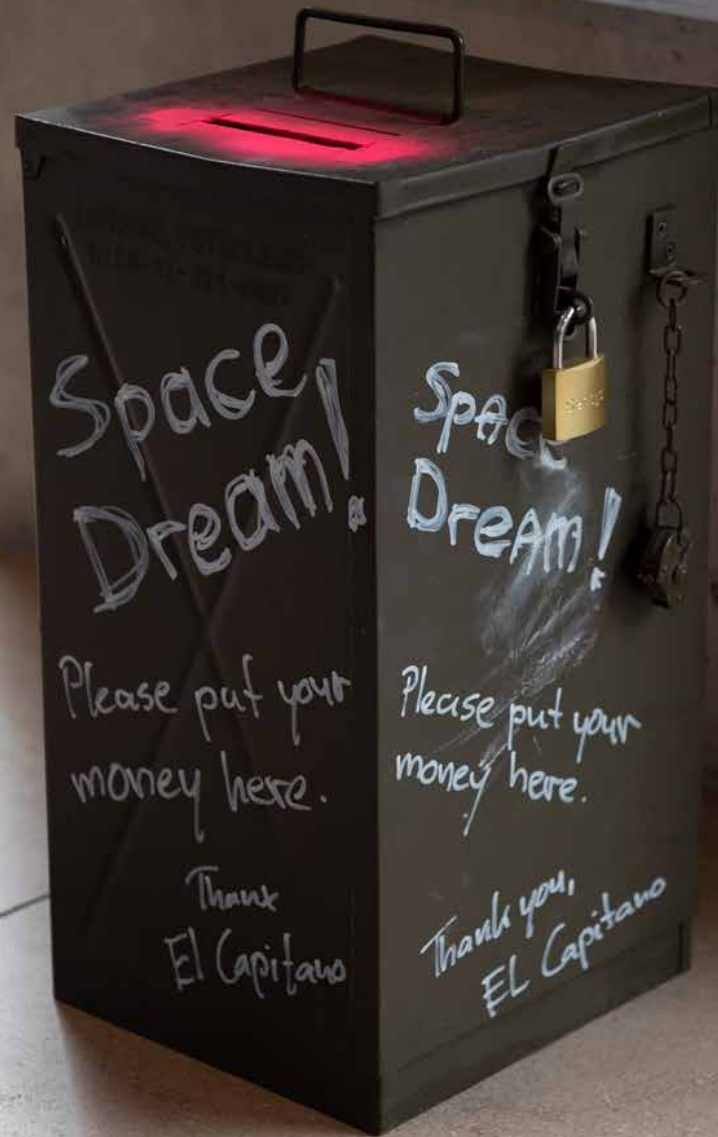 Space
Dream!
Please put your
money here.
Thank
El Capitano
Space
Dream!
Please put your
money here.
Thank you,
EL Capitano